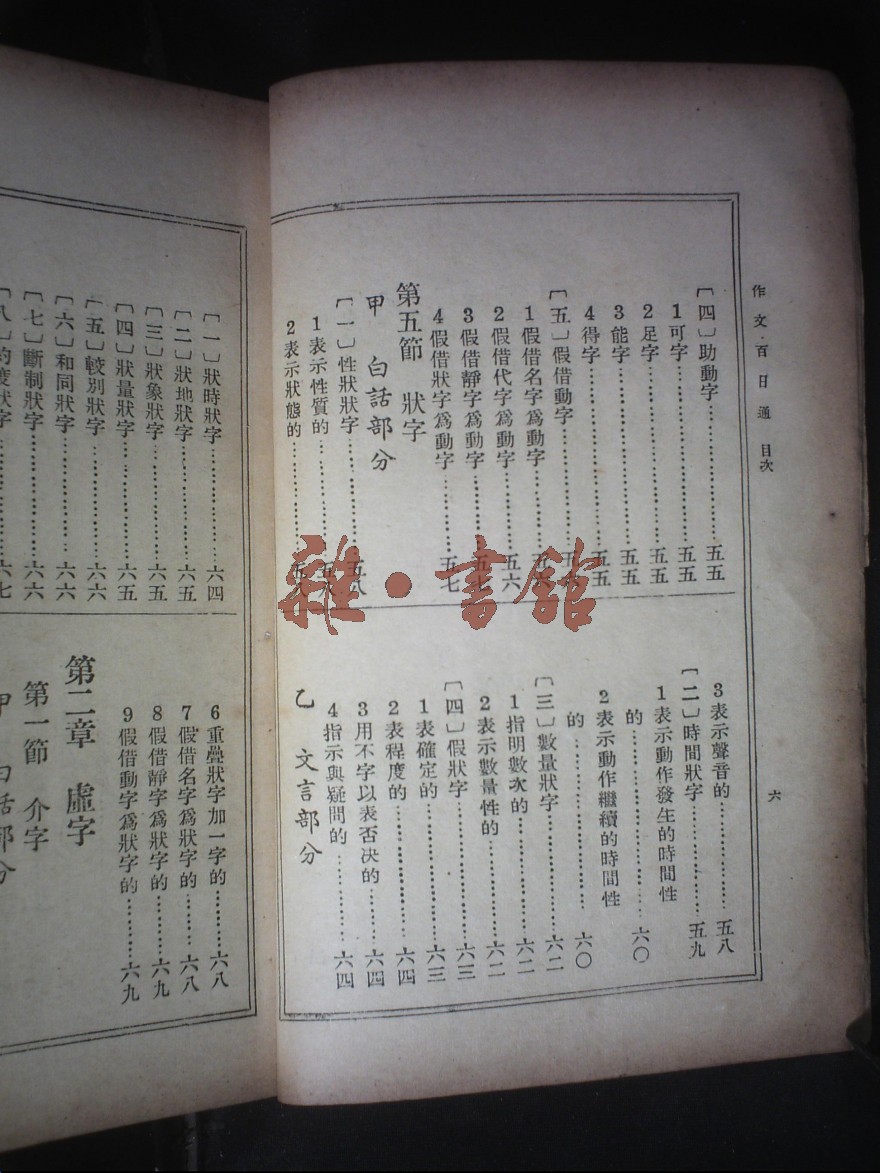 作文百日通 目次
六
〔四〕助動字……五五
1可字……五五
2足字……五五
3能字……五五
4得字……五五
〔五〕假借動字……五
1假借名字爲動字……五六
2假借代字爲動字……五六
3假借靜字爲動字……五七
4假借狀字爲動字……五七
第五節 狀字
甲 白話部分
〔一〕性狀狀字……五八
1表示性質的……五八
2表示狀態的……五八
3表示聲音的……五八
〔二〕時間狀字……五九
1表示動作發生的時間性
的……六〇
2表示動作繼續的時間性
的……六〇
〔三〕數量狀字……六二
1指明數次的……六二
2表示數量性的……六二
〔四〕假狀字……六三
1表確定的……六三
2表程度的……六四
3用不字以表否決的……六四
4指示與疑問的……六四
乙 文言部分
〔一〕狀時狀字……六四
〔二〕狀地狀字……六五
〔三〕狀象狀字……六五
〔四〕狀量狀字……六五
〔五〕較別狀字……六六
〔六〕和同狀字……六六
〔七〕斷制狀字……六六
〔八〕約度狀字……六七
6重疊狀字加一字的……六八
7假借名字爲狀字的……六八
8假借靜字爲狀字的……六九
9假借動字爲狀字的……六九
第二章 虛字
第一節 介字
甲 白話部分
雜·書館